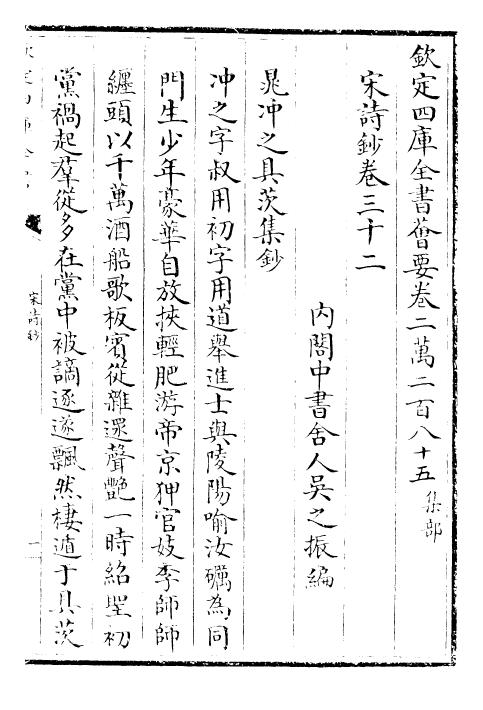 欽定四庫全書薈要卷二萬二百八十五 集部
宋詩鈔卷三十二
內閣中書舍人吳之振編
晁冲之具茨集鈔
冲之字叔用初字用道舉進士與陵陽喻汝礪為同
門生少年豪華自放挾輕肥游帝京狎官妓李師師
纏頭以千萬酒船歌板賓從雜遝聲艷一時紹聖初
黨禍起羣從多在黨中被謫逐遂飄然棲遁于具茨
宋詩鈔
一